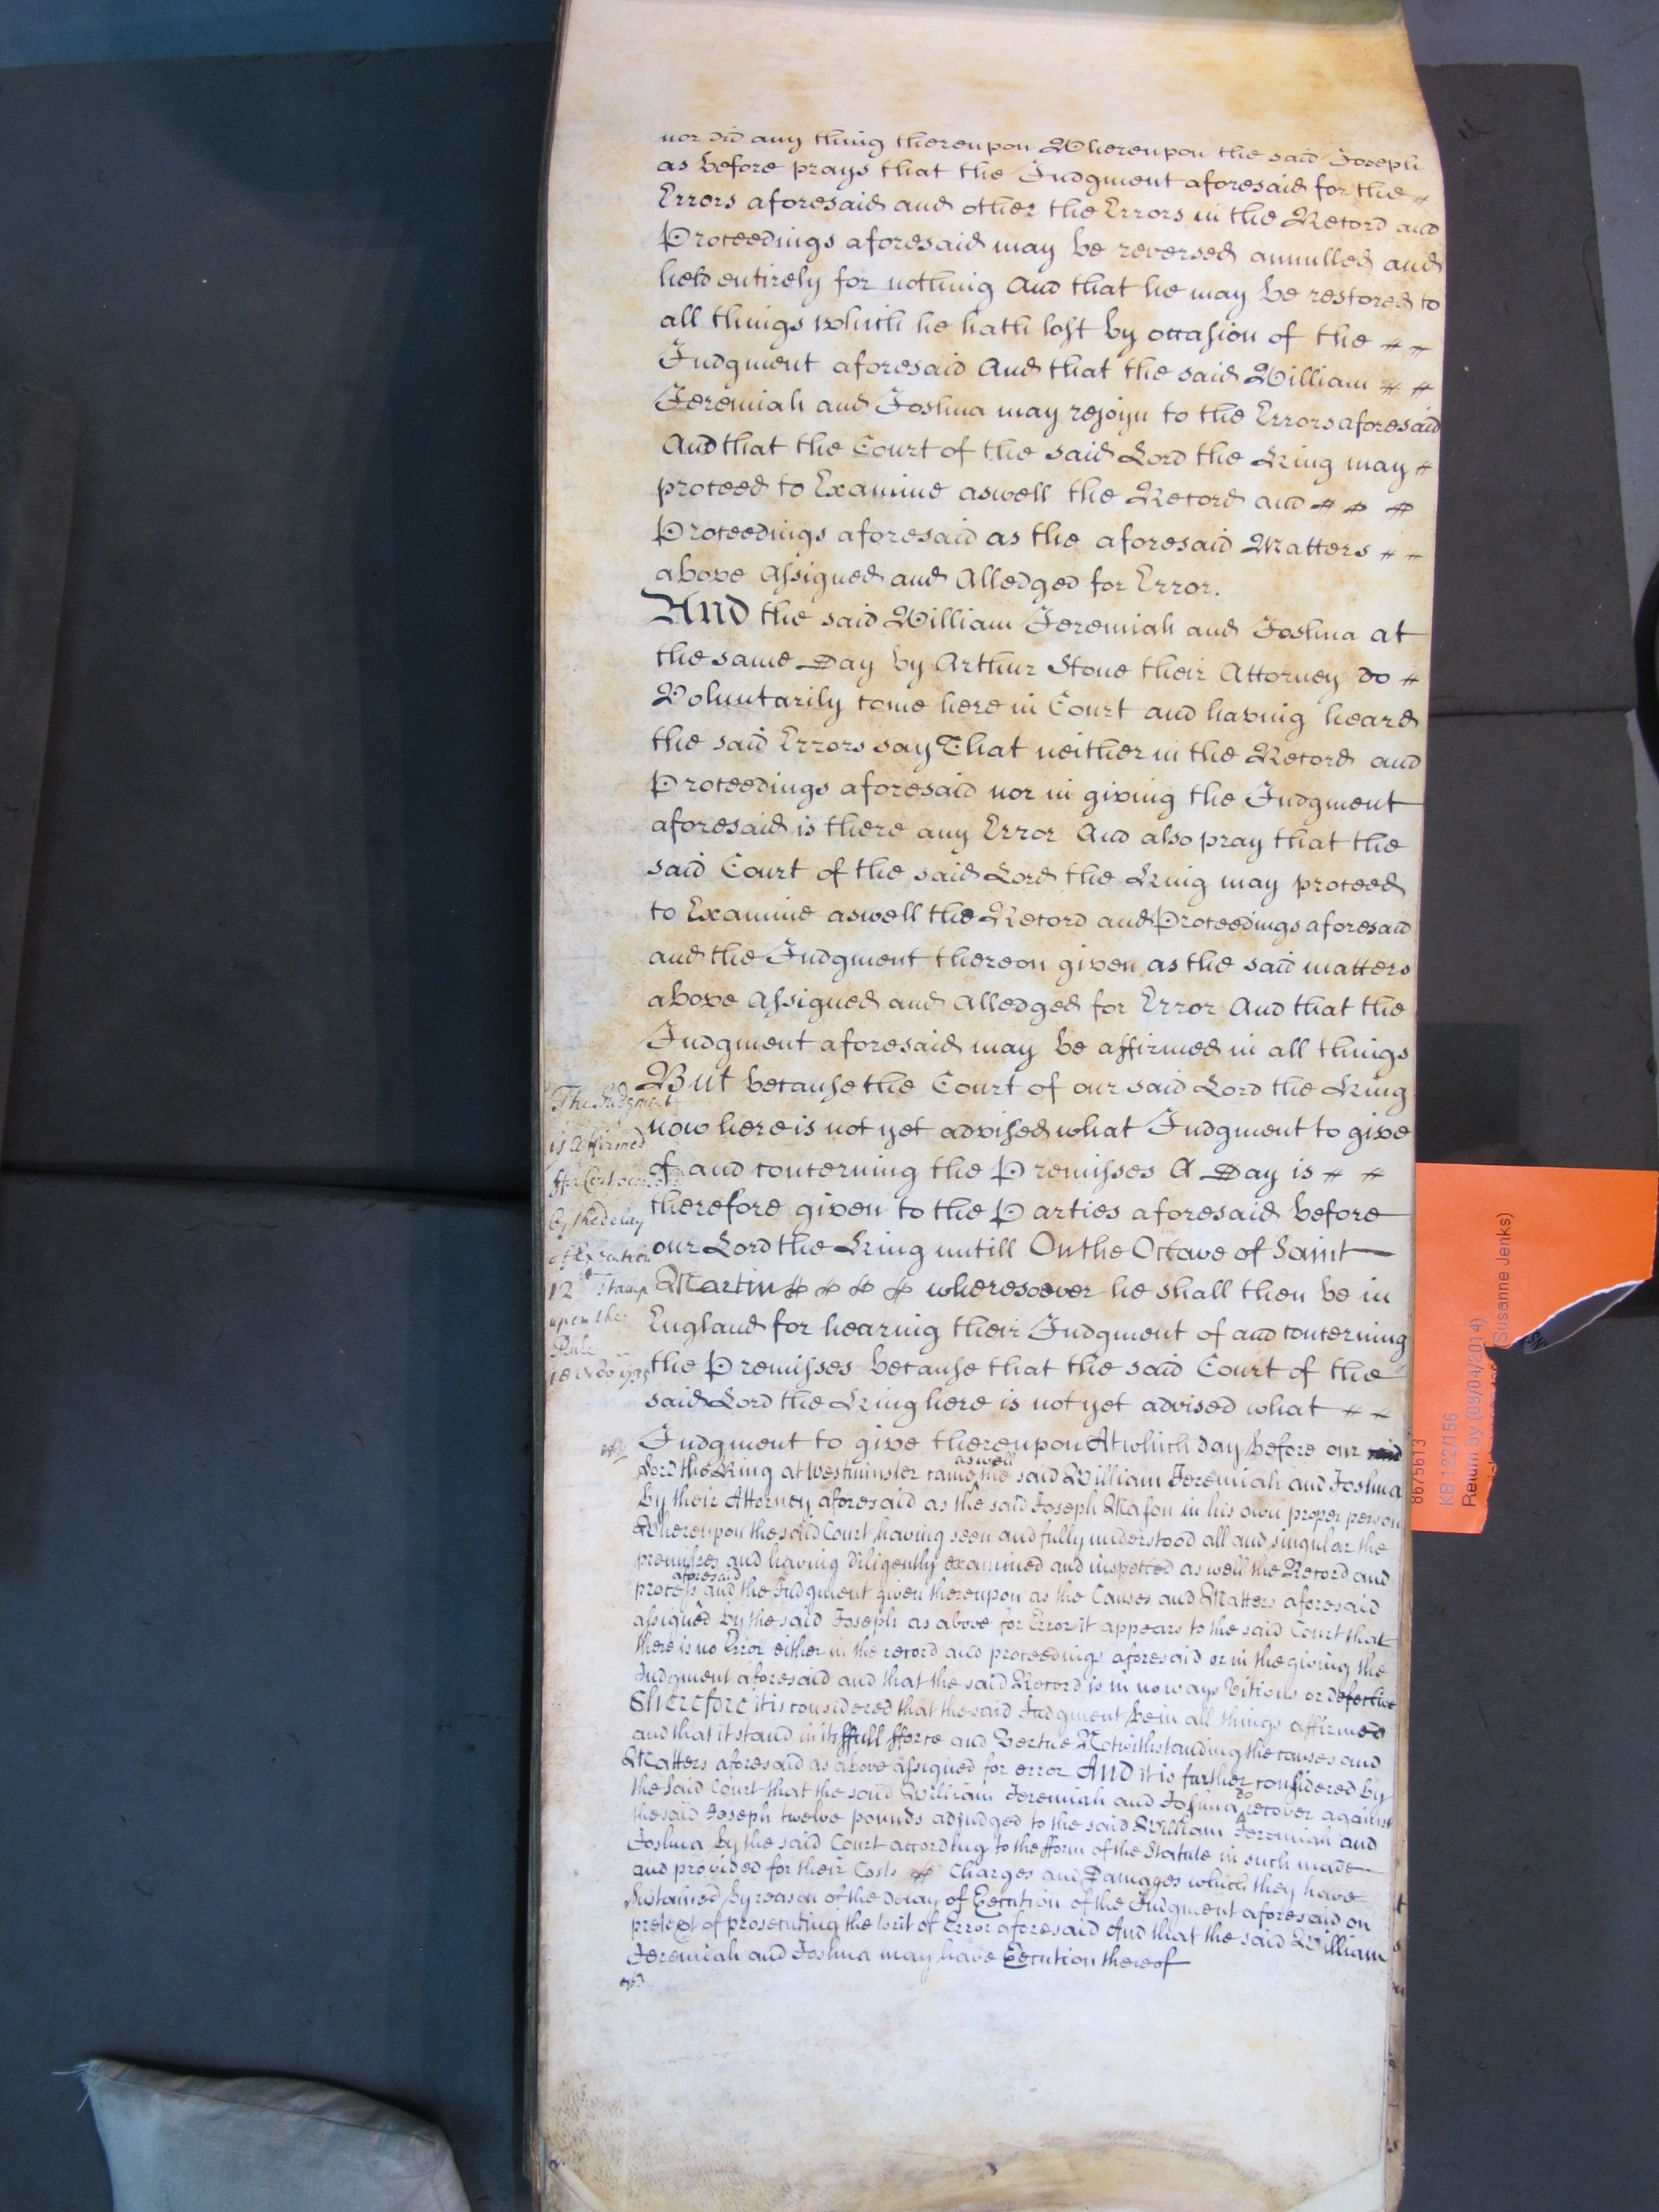 nor did any thing thereupon Whereupon the said Joseph
as before prays that the Judgment aforesaid for the
Errors aforesaid and other the Errors in the Record and
Proceedings aforesaid may be reversed annulled and
held entirely for nothing And that he may be restored to
all things which he hath lost by occasion of the
Judgment aforesaid And that the said William
Jeremiah and Joshua may rejoyn to the Errors aforesaid
And that the Court of the said Lord the King may
proceed to Examine aswell the Record and
Proceedings aforesaid as the aforesaid Matters
above Assigned and Alledged for Error.
And the said William Jeremiah and Joshua at
the same Day by Arthur Stone their Attorney do
Voluntarily come here in Court and having heard
the said Errors say That neither in the Record and
Proceedings aforesaid nor in giving the Judgment
aforesaid is there any Error And also pray that the
said Court of the said Lord the King may proceed
to Examine aswell the Record and Proceedings aforesaid
and the Judgment thereon given as the said matters
above Assigned and Alledged for Error And that the
Judgment aforesaid may be affirmed in all things
But because the Court of our said Lord the King
now here is not yet advised what Judgment to give
of and concerning the Premisses A Day is
therefore given to the Parties aforesaid before
our Lord the King untill On the Octave of Saint
Martin wheresoever he shall then be in
England for hearing their Judgment of and concerning
the Premisses because that the said Court of the
said Lord the King here is not yet advised what
Judgment to give thereupon At which day before our said
Lord the King at Westminster came aswell the said William Jeremiah and Joshua
by their Attorney aforesaid as the said Joseph Mason in his own proper person
Whereupon the said Court having seen and fully understood all and singular the
premisses and having diligently examined and inspected as well the Record and
process aforesaid and the Judgment given thereupon as the Causes and Matters aforesaid
assigned by the said Joseph as above for Error it appears to the said Court that
there is no Error either in the record and proceedings aforesaid or in the giving the
Judgment aforesaid and that the said Record is in no ways Vitious or defective
Therefore it is considered that the said Judgment be in all things affirmed
and that it stand in its ffull fforce and Vertue Notwithstanding the causes and
Matters aforesaid as above assigned for error And it is further considered by
the said Court that the said William Jeremiah and Joshua do recover against
the said Joseph twelve pounds adjudged to the said William Jeremiah and
Joshua by the said Court according to the fform of the Statute in such made
and provided for their Costs Charges and Damages which they have
Sustained by reason of the delay of Execution of the Judgment aforesaid on
pretext of prosecuting the writ of Error aforesaid And that the said William
Jeremiah and Joshua may have Execution thereof
The Judgment
is Affirmed
by the delay
of Execution
12 Stamp
upon the
Rule
8675613
KB 122/156
Return by (09/04/2014)
(Susanne Jenks)